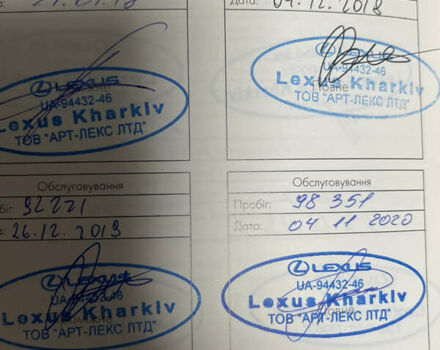 Дата: 04.12.2018
LEXUS
UA-94432-46
Lexus Kharkiv
ТОВ "АРТ-ЛЕКС ЛТД"
LEXUS
UA-94432-46
Lexus Kharkiv
ТОВ "АРТ-ЛЕКС ЛТД"
Обслуговування
92271
26.12.2019
LEXUS
UA-94432-46
Lexus Kharkiv
ТОВ "АРТ-ЛЕКС ЛТД"
Обслуговування
Пробіг: 98 351
Дата: 04 11 2020
LEXUS
UA-94432-46
Lexus Kharkiv
ТОВ "АРТ-ЛЕКС ЛТД"